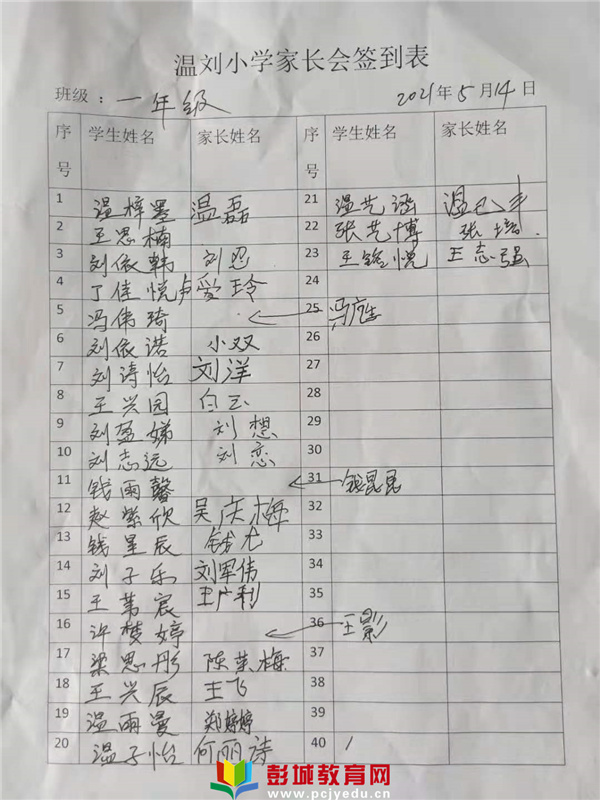 温刘小学家长会签到表
班级：一年级 2021年5月14日
序号 学生姓名 家长姓名 序号 学生姓名 家长姓名
1 温梓墨 温磊 21 温艺涵
2 王思楠 22 张艺博 张培
3 刘依韩 刘忍 23 王铭悦 王志强
4 丁佳悦 卢爱玲 24
5 冯伟琦 25 冯庆生
6 刘依诺 小双 26
7 刘诗怡 刘洋 27
8 王兴园 白玉 28
9 刘盈娣 刘想 29
10 刘志远 刘恋 30
11 钱雨馨 31 钱昆昆
12 赵紫欣 吴庆梅 32
13 钱星辰 钱尤 33
14 刘子乐 刘军伟 34
15 王苇宸 王广利 35
16 许梦婷 36 王影
17 梁思彤 陈荣梅 37
18 王兴辰 王飞 38
19 温雨曼 郑婷婷 39
20 温子怡 何丽诗 40
彭城教育网
www.pcjyedu.cn